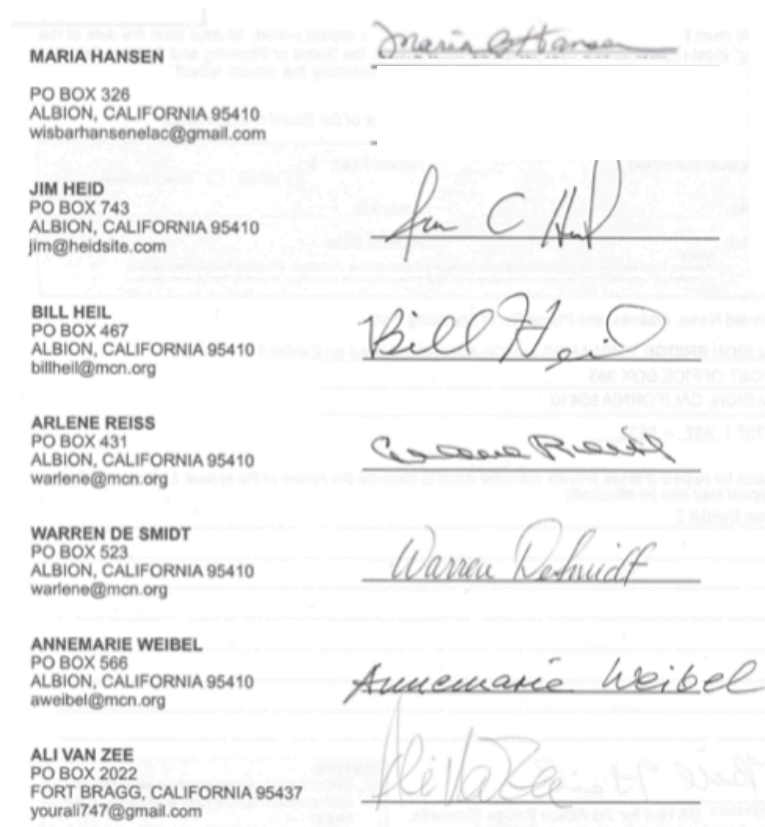 MARIA HANSEN
Maria Hansen
PO BOX 326
ALBION, CALIFORNIA 95410
wisbarhansenelac@gmail.com
JIM HEID
PO BOX 743
ALBION, CALIFORNIA 95410
jim@heidsite.com
C
BILL HEIL
PO BOX 467
ALBION, CALIFORNIA 95410
billheil@mcn.org
Bill Heil
ARLENE REISS
PO BOX 431
ALBION, CALIFORNIA 95410
warlene@mcn.org
WARREN DE SMIDT
PO BOX 523
ALBION, CALIFORNIA 95410
warlene@mcn.org
Warren DeSmidt
ANNEMARIE WEIBEL
PO BOX 566
ALBION, CALIFORNIA 95410
aweibel@mcn.org
Annemarie Weibel
ALI VAN ZEE
PO BOX 2022
FORT BRAGG, CALIFORNIA 95437
yourali747@gmail.com
Ali Van Zee